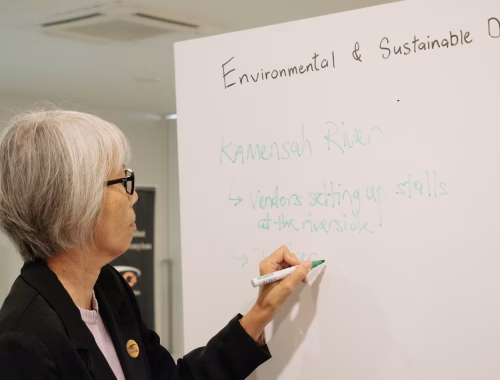 Environmental & Sustainable
Kamensah River
↳ Vendors setting up stalls
at the riverside
↳